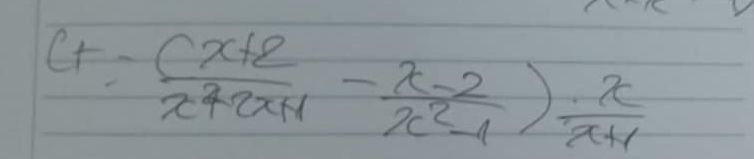 C+ = (x+2/x²+2x+1 - x-2/x²-1) . x/x+1